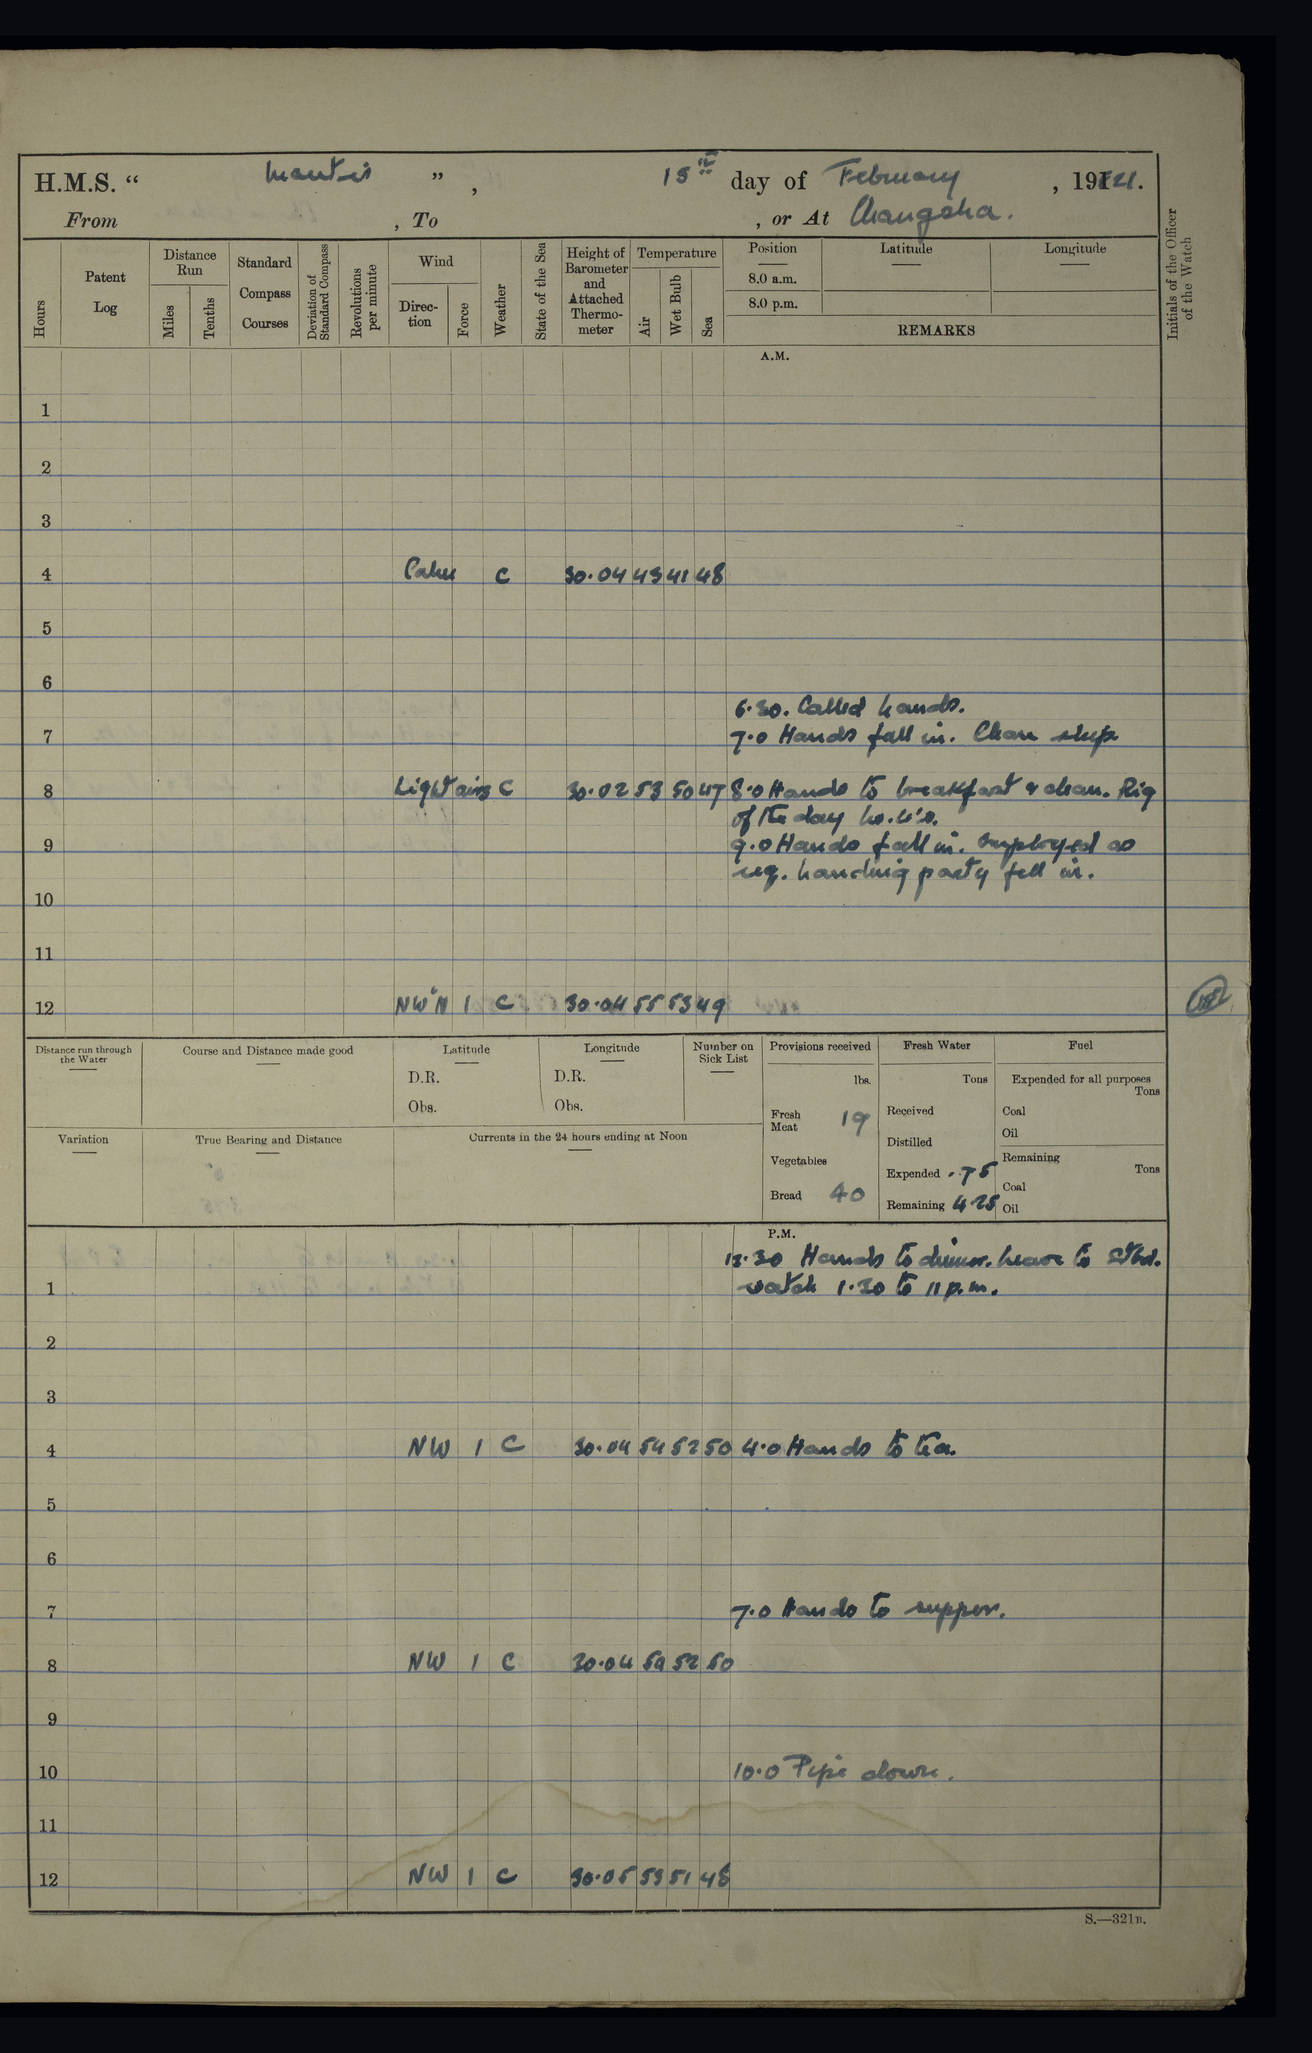 H.M.S. “ Mantis ” , 15th day of February , 1921.
From , To , or At Changsha.
Hours
Patent Log
Distance Run
Miles
Tenths
Standard Compass Courses
Deviation of Standard Compass
Revolutions per minute
Wind
Direction
Force
Weather
State of the Sea
Height of Barometer and Attached Thermometer
Temperature
Air
Wet Bulb
Sea
Position
8.0 a.m.
8.0 p.m.
Latitude
Longitude
REMARKS
Initials of the Officer of the Watch
A.M.
1
2
3
4 Calm C 30.04 43 41 48
5
6
6.30. Called hands.
7 7.0 Hands fall in. Clean ship
8 Light airs C 30.02 53 50 47 8.0 Hands to breakfast & clean. Rig
of the day No. 4's.
9 9.0 Hands fall in. Employed as
req. Landing party fell in.
10
11
12 NW'N 1 C 30.04 55 53 49
Distance run through the Water
Course and Distance made good
Latitude
D.R.
Obs.
Longitude
D.R.
Obs.
Number on Sick List
Variation
True Bearing and Distance
Currents in the 24 hours ending at Noon
Provisions received
lbs.
Fresh Meat 19
Vegetables
Bread 40
Fresh Water
Tons
Received
Distilled
Expended .75
Remaining 4.25
Fuel
Expended for all purposes
Tons
Coal
Oil
Remaining
Tons
Coal
Oil
P.M.
12.30 Hands to dinner. Leave to Stbd.
1 watch 1.30 to 11 p.m.
2
3
4 NW 1 C 30.04 54 52 50 4.0 Hands to tea.
5
6
7 7.0 Hands to supper.
8 NW 1 C 30.04 54 52 50
9
10 10.0 Pipe down.
11
12 NW 1 C 30.05 53 51 48
S.—321B.